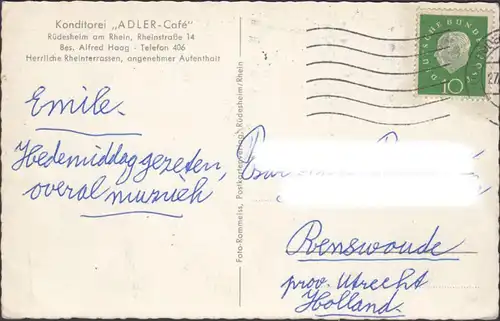 Konditorei „ADLER-Café"
Rüdesheim am Rhein, Rheinstraße 14
Bes. Alfred Haag - Telefon 406
Herrliche Rheinterrassen, angenehmer Aufenthalt
DEUTSCHE BUNDESPOST
10
Emile.
Hedemiddag gezeten,
overal muziek,
Foto-Rommelss, Postkartenverlag, Rüdesheim/Rhein
Renswoude
prov. Utrecht
Holland.